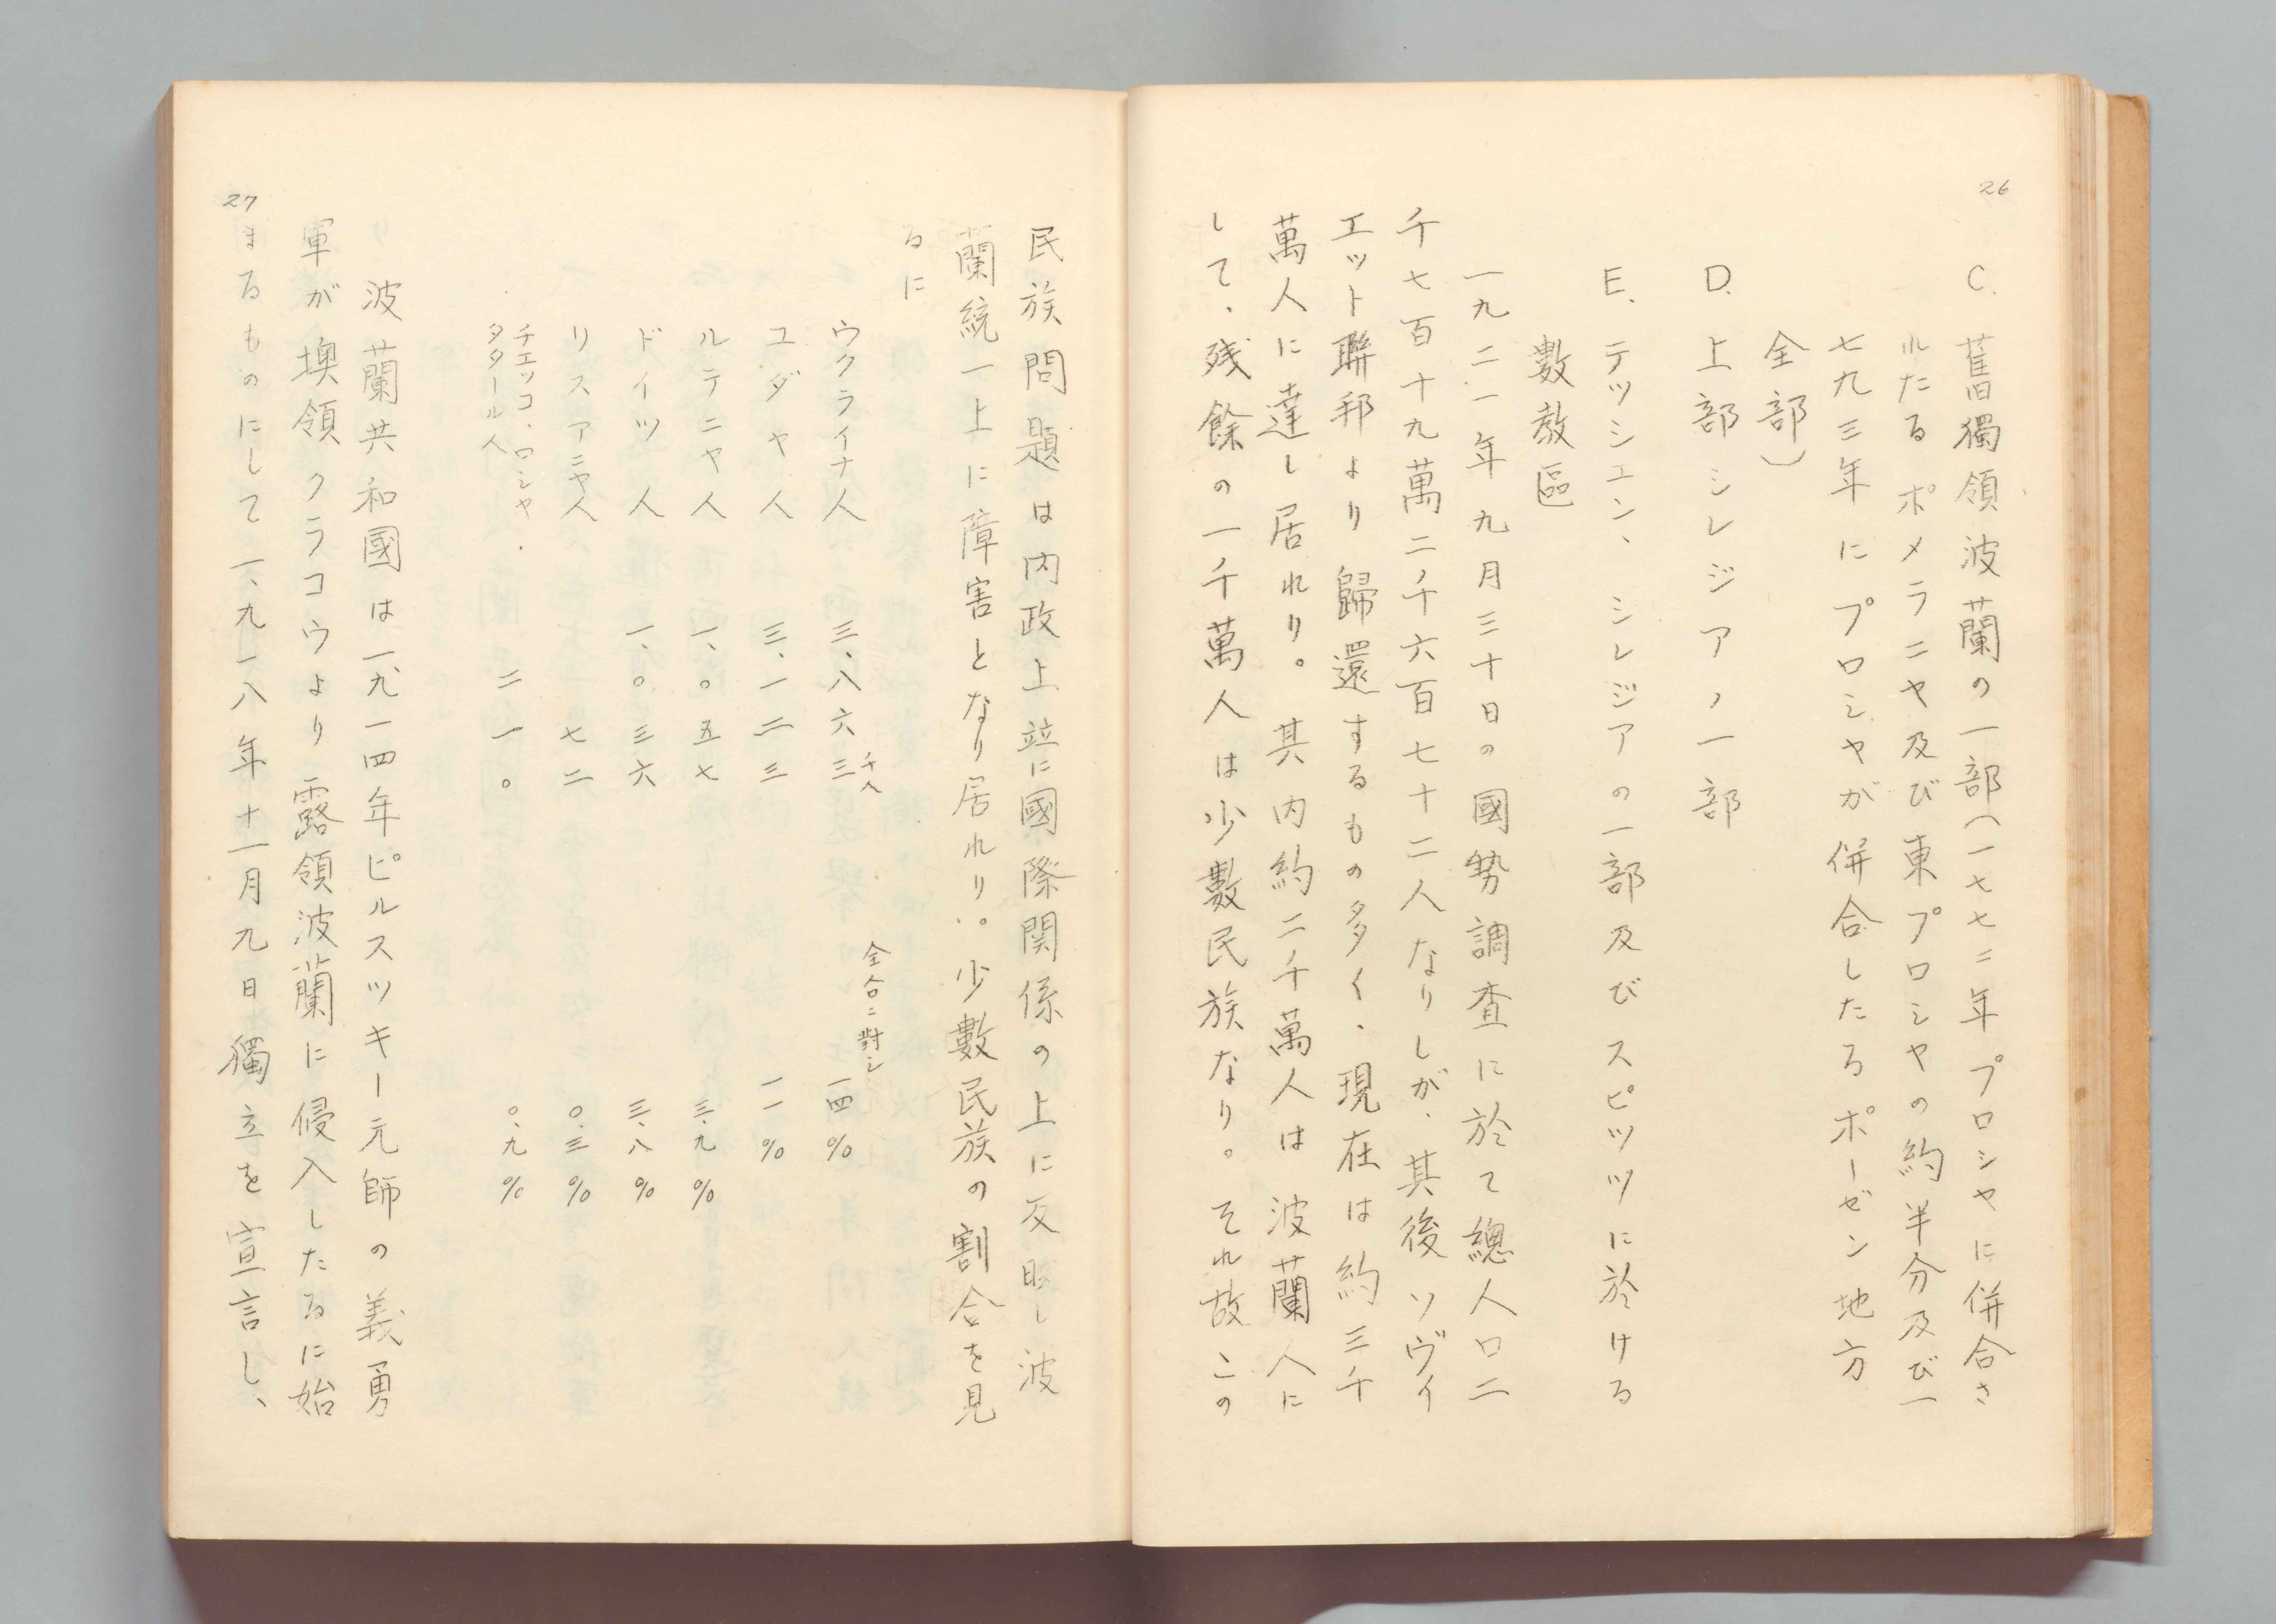 26
C. 舊獨領波蘭の一部(一七七二年プロシヤに併合さ
れたるポメラニヤ及び東プロシヤの約半分及び一
七九三年にプロシヤが併合したるポーゼン地方
全部)
D. 上部シレジアノ一部
E. テツシエン、シレジアの一部及びスピツツに於ける
數教區
一九二一年九月三十日の國勢調査に於て總人口二
千七百十九萬二千六百七十二人なりしが、其後ソヴイ
エット聯邦より歸還するもの多く、現在は約三千
萬人に達し居れり。其内約二千萬人は波蘭人に
して、残餘の一千萬人は少數民族なり。それ故この
民族問題は内政上竝に國際関係の上に反映し波
蘭統一上に障害となり居れり。少數民族の割合を見
るに
千人 全合ニ對シ
ウクライナ人 三、八六三 一四%
ユダヤ人 三、一二三 一一%
ルテニヤ人 一、〇五七 三、九%
ドイツ人 一、〇三六 三、八%
リスアニヤ人 七二 〇、三%
チエッコ、ロシヤ、
タタール人 二一〇 〇、九%
波蘭共和國は一九一四年ピルスツキー元師の義勇
軍が墺領クラコウより露領波蘭に侵入したるに始
まるものにして一、九一八年十一月九日獨立を宣言し、
27